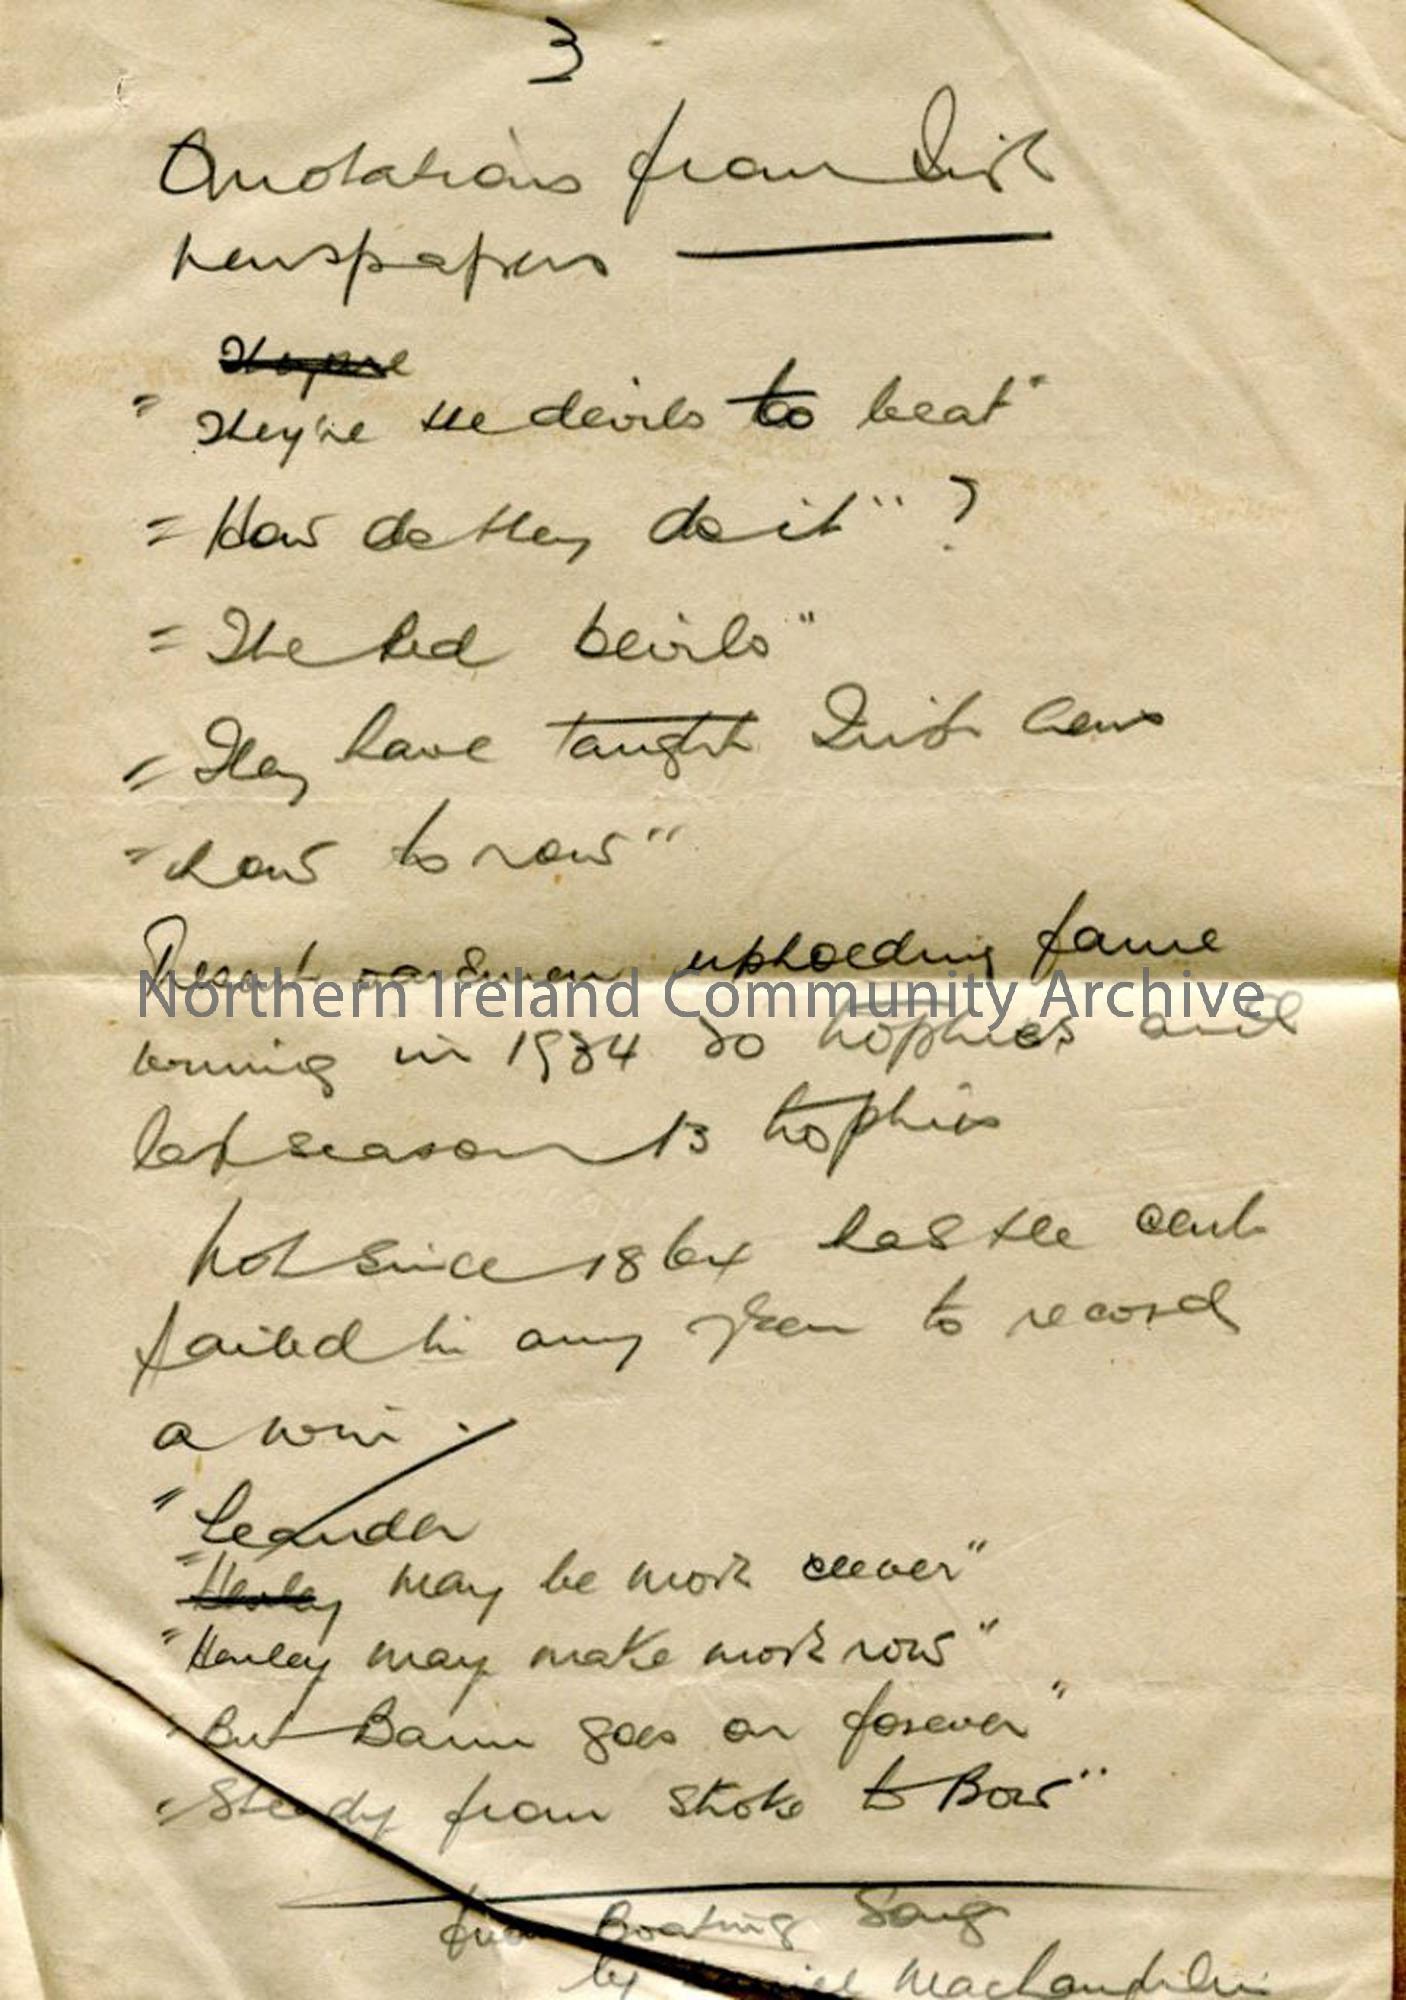 3
Quotations from Irish
newspapers
They're
" They're the devils to beat"
" How do they do it" ?
" The Red Devils"
" They have taught Irish crews
" how to row"
Present oarsmen upholding fame
Northern Ireland Community Archive
winning in 1934 20 trophies and
last season 13 trophies
Not since 1864 has the club
failed in any year to record
a win.
" Leander
" Henley may be more clever"
" Henley may make more row"
" But Bann goes on forever"
" Steady from stroke to Bow"
from Boating Song
by Daniel MacLaughlin